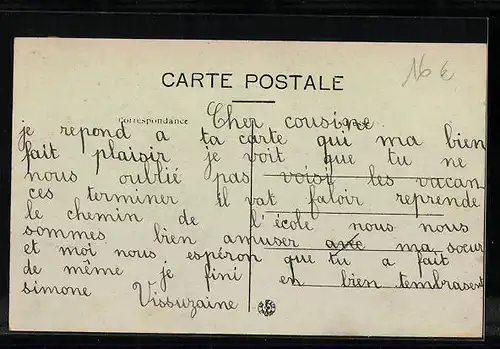 16 €
CARTE POSTALE
Correspondance
Cher cousine
je repond a ta carte qui ma bien
fait plaisir je voit que tu ne
nous oublié pas voisi les vacan
ces terminer il vat faloir reprende
le chemin de l'école nous nous
sommes bien amuser avec ma sœur
et moi nous espéron que tu a fait
de même je fini en bien tembrasent
simone Vissuzaine